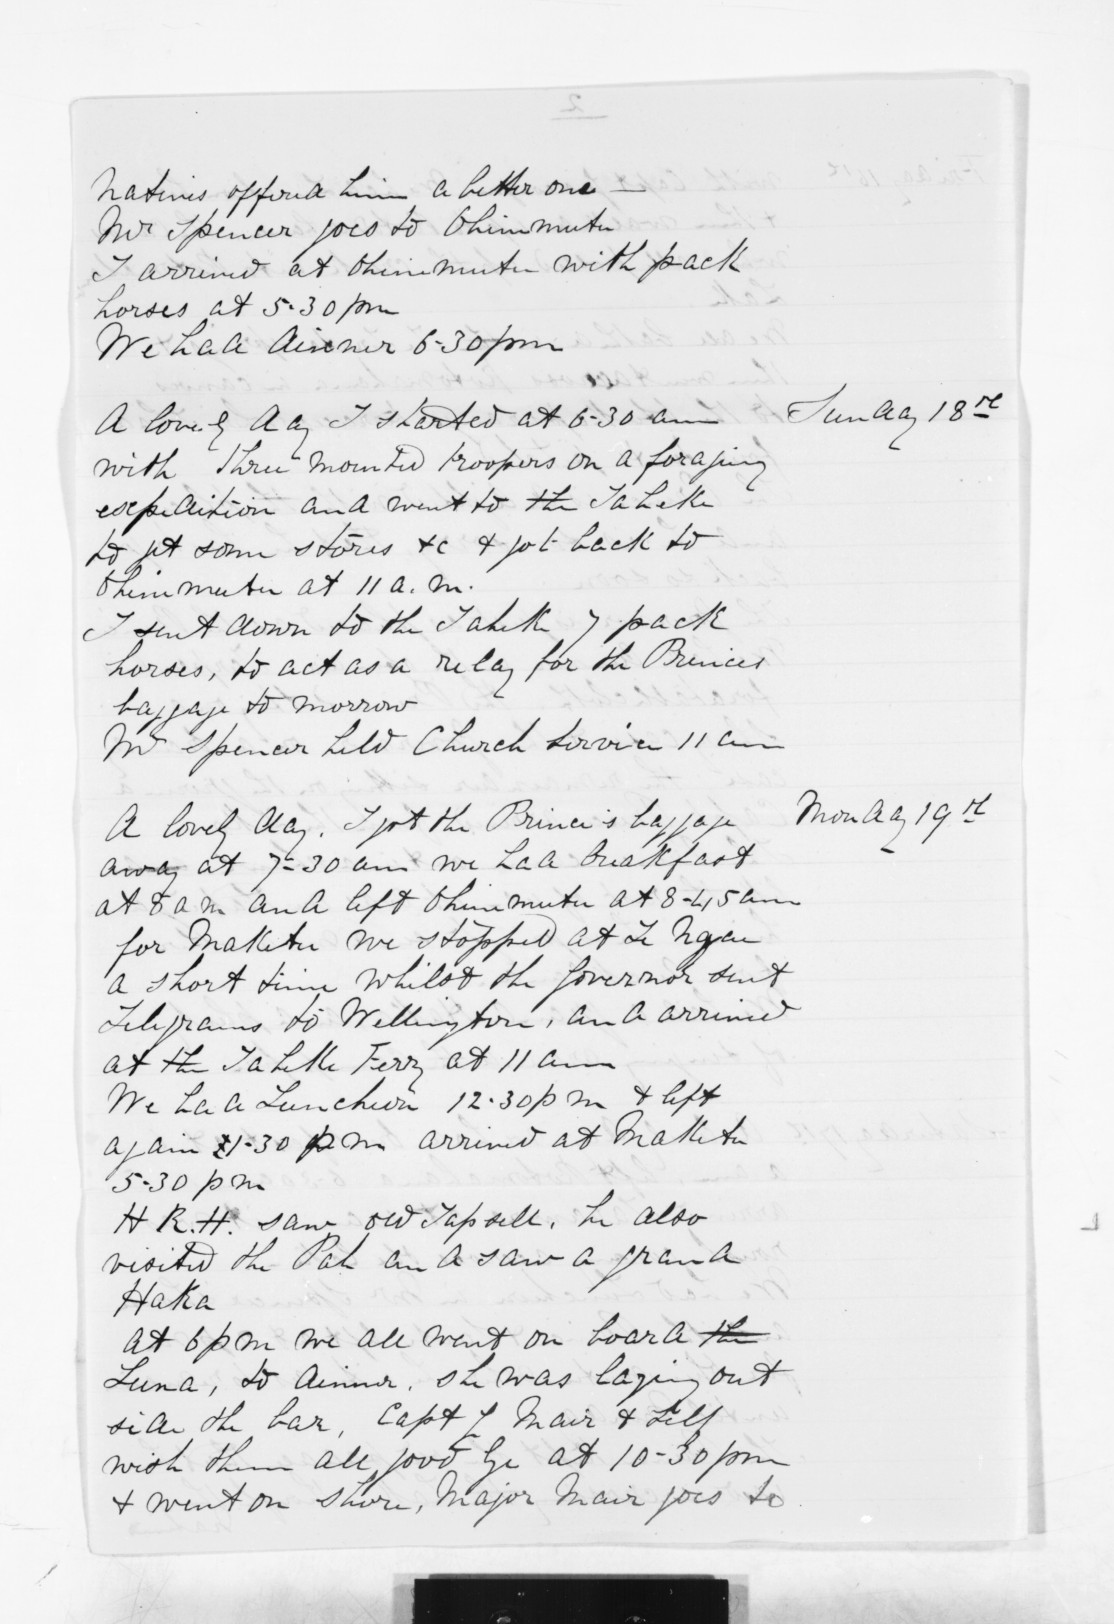 natives offered him a better one —
Mr Spencer goes to Ohinemutu
I arrived at Ohinemutu with pack
horses at 5-30 pm
We had dinner 6-30 pm
Sunday 18th
A lovely day I started at 6-30 am
with three mounted troopers on a foraging
expedition and went to the Taheke
to get some stores &c & got back to
Ohinemutu at 11 a.m.
I sent down to the Taheke 7 pack
horses, to act as a relay for the Princes
baggage to morrow
Mr Spencer held Church Service 11 am
Monday 19th
A lovely day. I got the Prince's baggage
away at 7-30 am we had breakfast
at 8 am and left Ohinemutu at 8-45 am
for Maketu we stopped at Te Ngae
a short time whilst the Governor sent
Telegrams to Wellington, and arrived
at the Taheke Ferry at 11 am
We had Luncheon 12-30 pm & left
again 1-30 pm arrived at Maketu
5-30 pm
H R.H. saw old Tapsell, he also
visited the Pah and saw a grand
Haka
at 6 pm we all went on board the
Luna, to dinner, she was laying out
side the bar, Capt G Mair & Self
wish them all good bye at 10-30 pm
& went on shore, Major Mair goes to